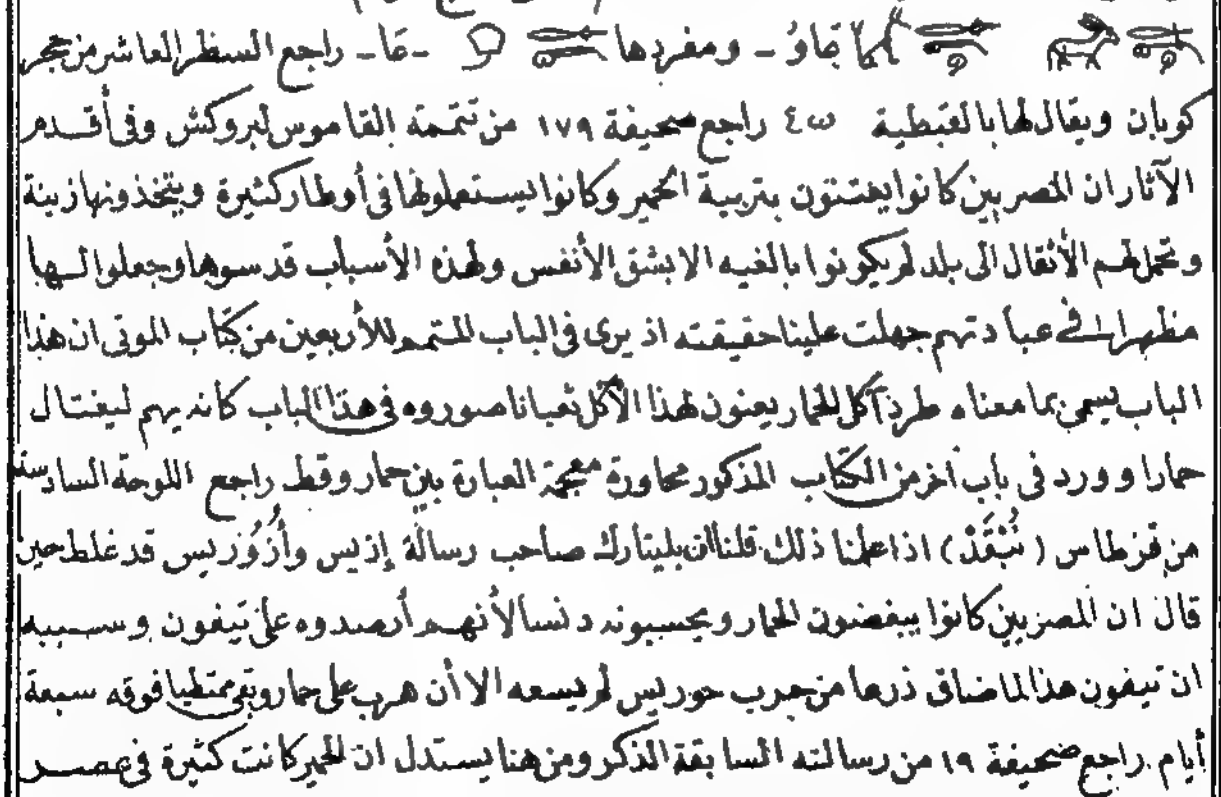 عَاوُ - ومفردها - عَا - راجع السطر العاشر من حجر
كوبان ويقال لها بالقبطية ⲉⲱ راجع صحيفة ١٧٩ من تتمة القاموس لبروكش وفى أقدم
الآثار ان المصريين كانوا يعتنون بتربية الحمير وكانوا يستعملونها فى أوطار كثيرة ويتخذونها زينة
وتحمل لهم الأثقال الى بلد لم يكونوا بالغيه الا بشق الأنفس ولهذه الأسباب قدسوها وجعلوا لها
مظهرا فى عبادتهم جهلت علينا حقيقته اذ يرى فى الباب المتمم للأربعين من كتاب الموتى ان هذا
الباب يسمى بما معناه طرد آكل الحمار يعنون لهذا الآكل ثعبانا صوروه فى هذا الباب كانه يهم ليغتال
حمارا وورد فى باب آخر من الكتاب المذكور محاورة معجمة العبارة بين حمار وقط راجع اللوحة السادسة
من قرطاس (نُبْقَدْ) اذا علمنا ذلك قلنا ان بليتارك صاحب رسالة إزيس وأُزُوريس قد غلط حين
قال ان المصريين كانوا يبغضون الحمار ويحسبونه دنسا لأنهم أرصدوه على تيفون وسببه
ان تيفون هذا لما ضاق ذرعا من حرب حوريس لم يسعه الا أن هرب على حمار وبقى ممتطيا فوقه سبعة
أيام راجع صحيفة ١٩ من رسالته السابقة الذكر ومن هنا يستدل ان الحمير كانت كثيرة فى عصر